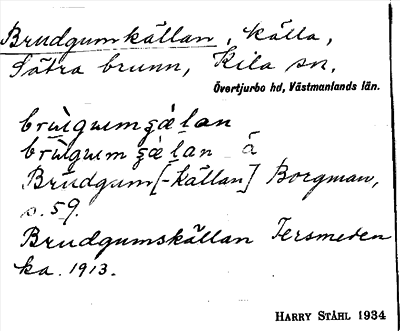 Brudgumkällan, källa,
Sätra brunn, Kila sn,
Övertjurbo hd, Västmanlands län.
brùigumçä̀lan
brùigumçä̀lan ä
Brudgum[-källan] Borgman,
s. 59.
Brudgumskällan Tersmeden
ka. 1913.
HARRY STÅHL 1934